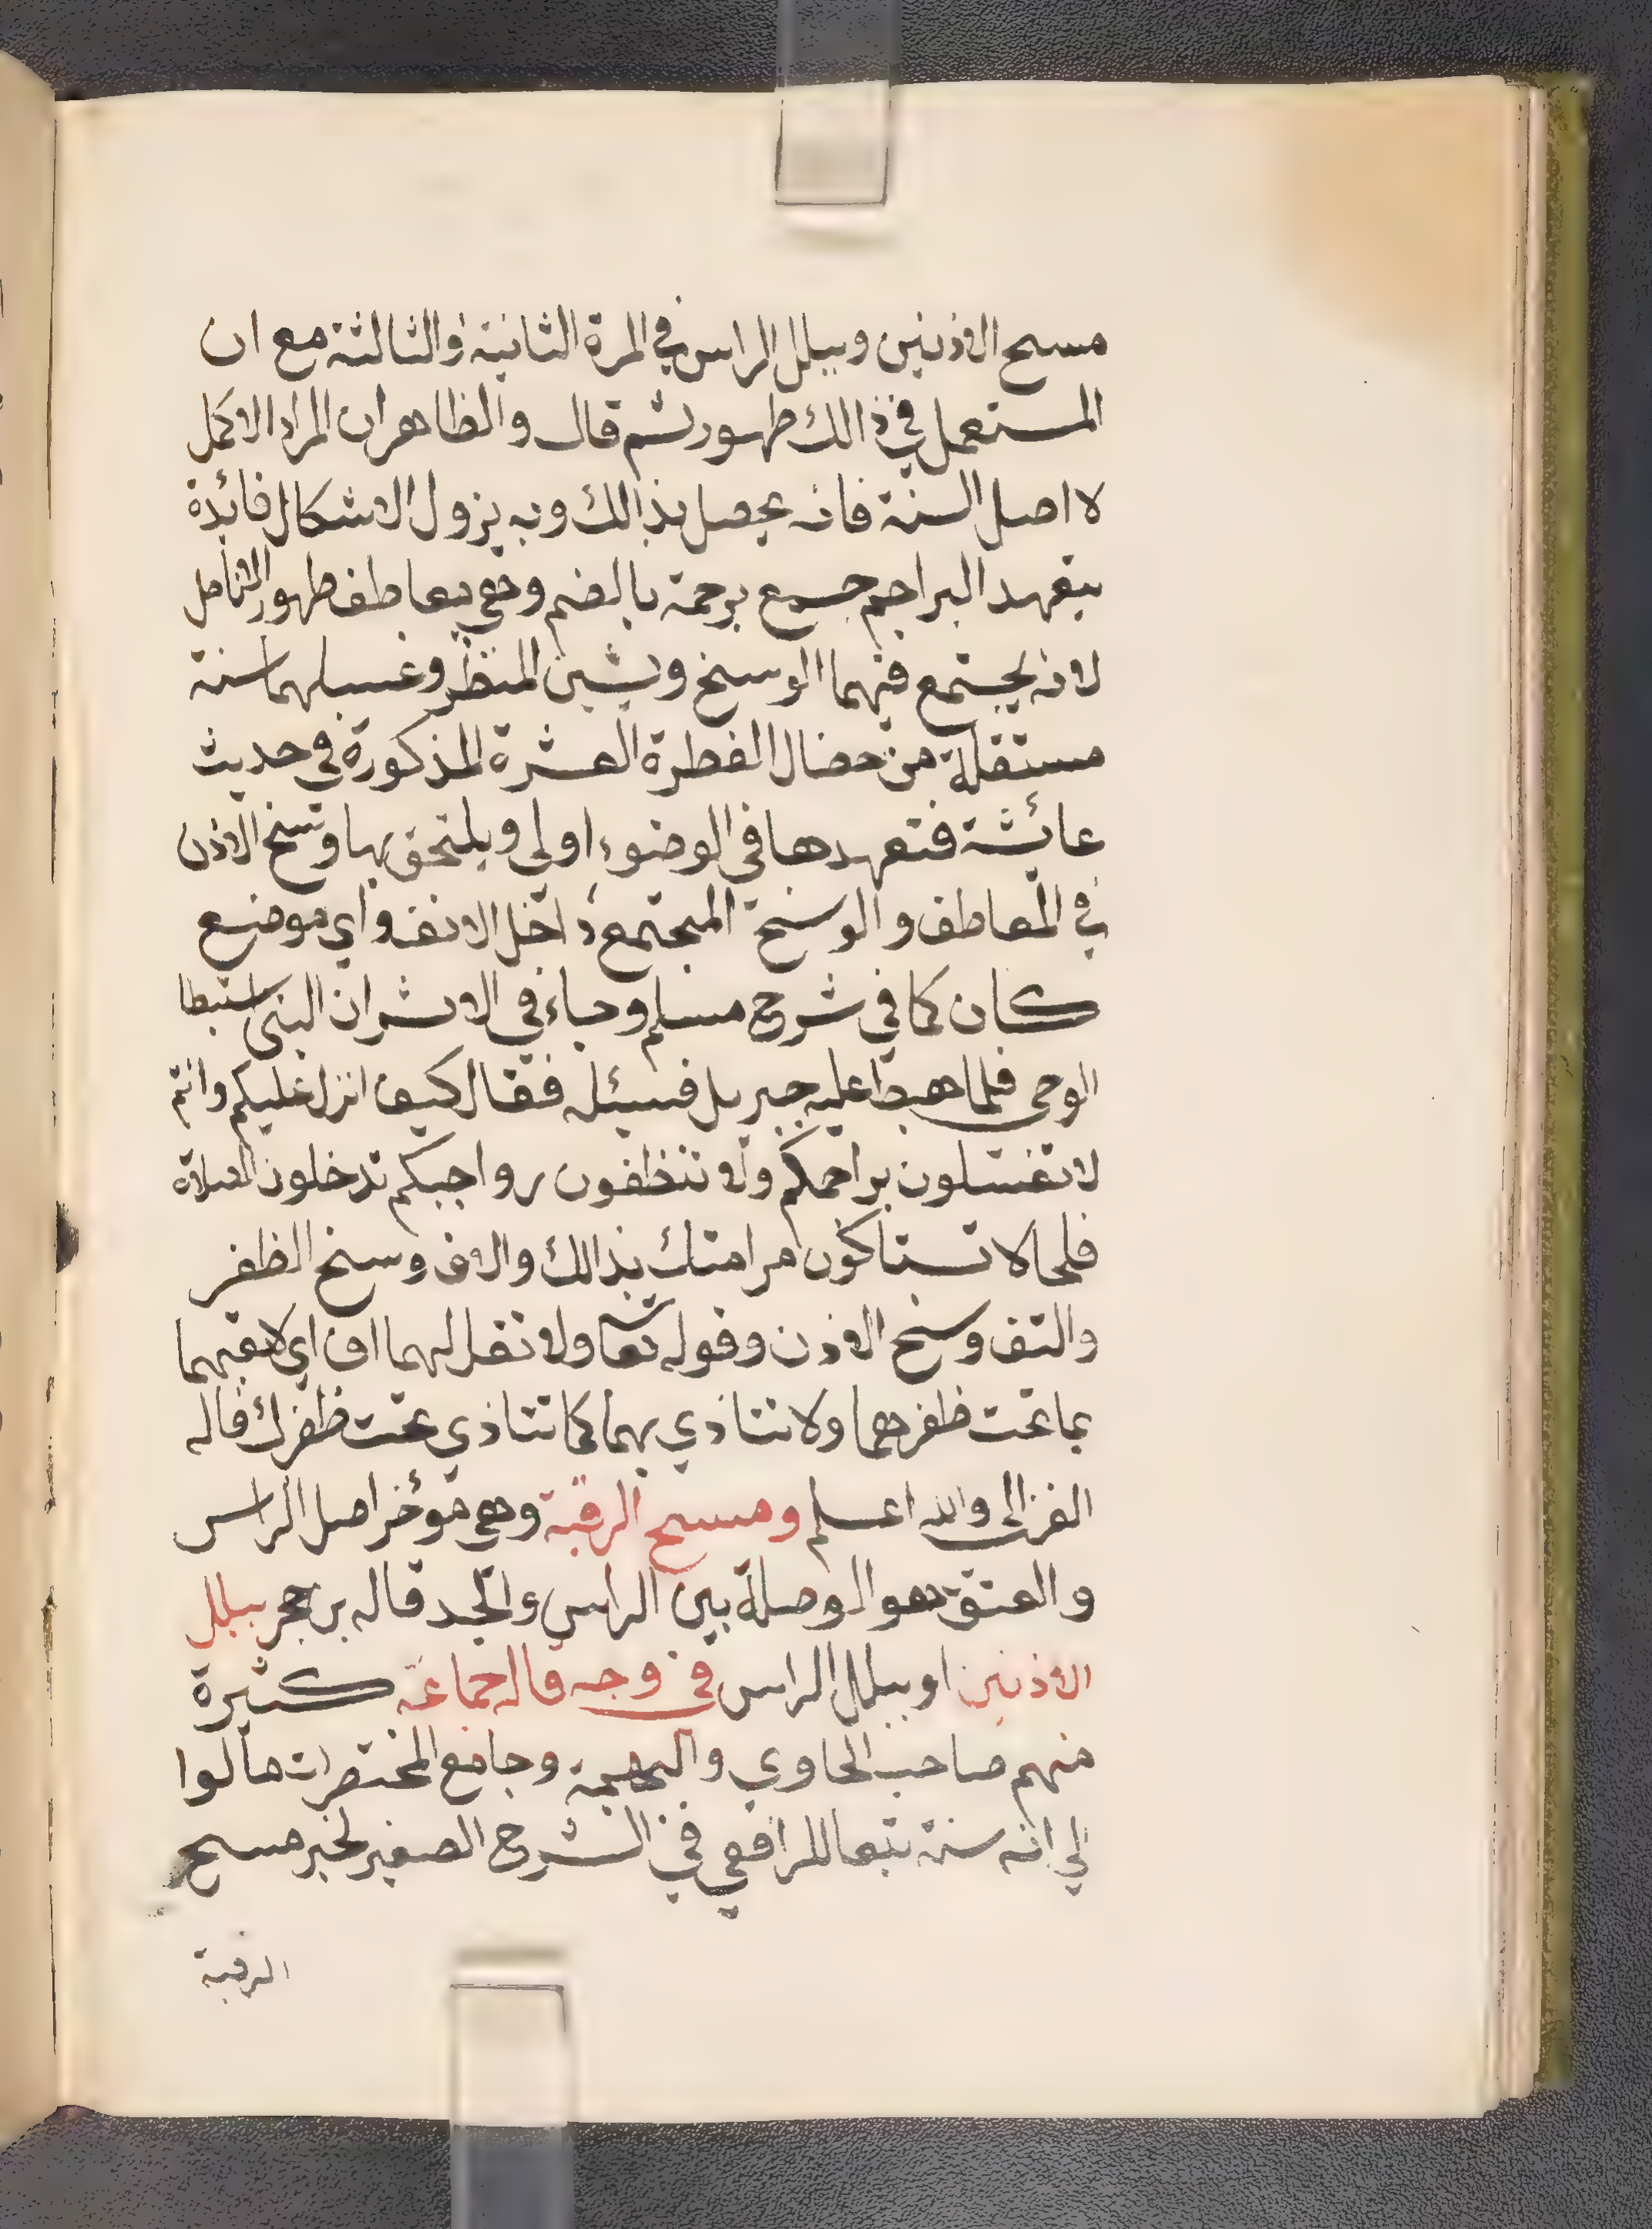 مسح الاذنين وببلل الراس في المرة الثانية والثالثة مع ان
المستعمل في ذالك طهور ثم قال والظاهران المراد الاكمل
لا اصل السنة فانه يحصل بذالك وبه يزول الاشكال فائدة
يتعهد البراجم جمع برجمة بالضم وهي معاطف ظهور الانامل
لانه يجتمع فيهما الوسخ ويشين المنظر وغسلهما سنة
مستقلة من خصال الفطرة العشرة المذكورة في حديث
عائشة فتعهدها في الوضوء اولي ويلتحق بها وسخ الاذن
في المعاطف والوسخ المجتمع داخل الانف واي موضع
كان كما في شرح مسلم وجاء في الاثر ان النبي استبطا
الوحي فلما هبط عليه جبريل فسئله فقال كيف انزل عليكم وانتم
لا تغتسلون براجمكم ولا تنظفون رواجبكم تدخلون الصلاة
فلحا لا تستاكون مر امتك بذالك والاف وسخ الظفر
والتف وسخ الاذن وقوله تعا ولا تقل لهما اف اي لا تعبهما
بما تحت ظفرهما ولا تتاذي بهما كما تتاذي تحت ظفرك قاله
الغزالي والله اعلم ومسح الرقبة وهي مؤخر اصل الراس
والعنق هو الوصلة بين الراس والجسد قاله بن حجر ببلل
الاذنين او ببلل الراس في وجه قاله جماعة كثيرة
منهم صاحب الحاوي والبهجة وجامع المختصرات مالوا
الي انه سنة تبعا للرافعي في الشرح الصغير لخبر مسح
الرقبة